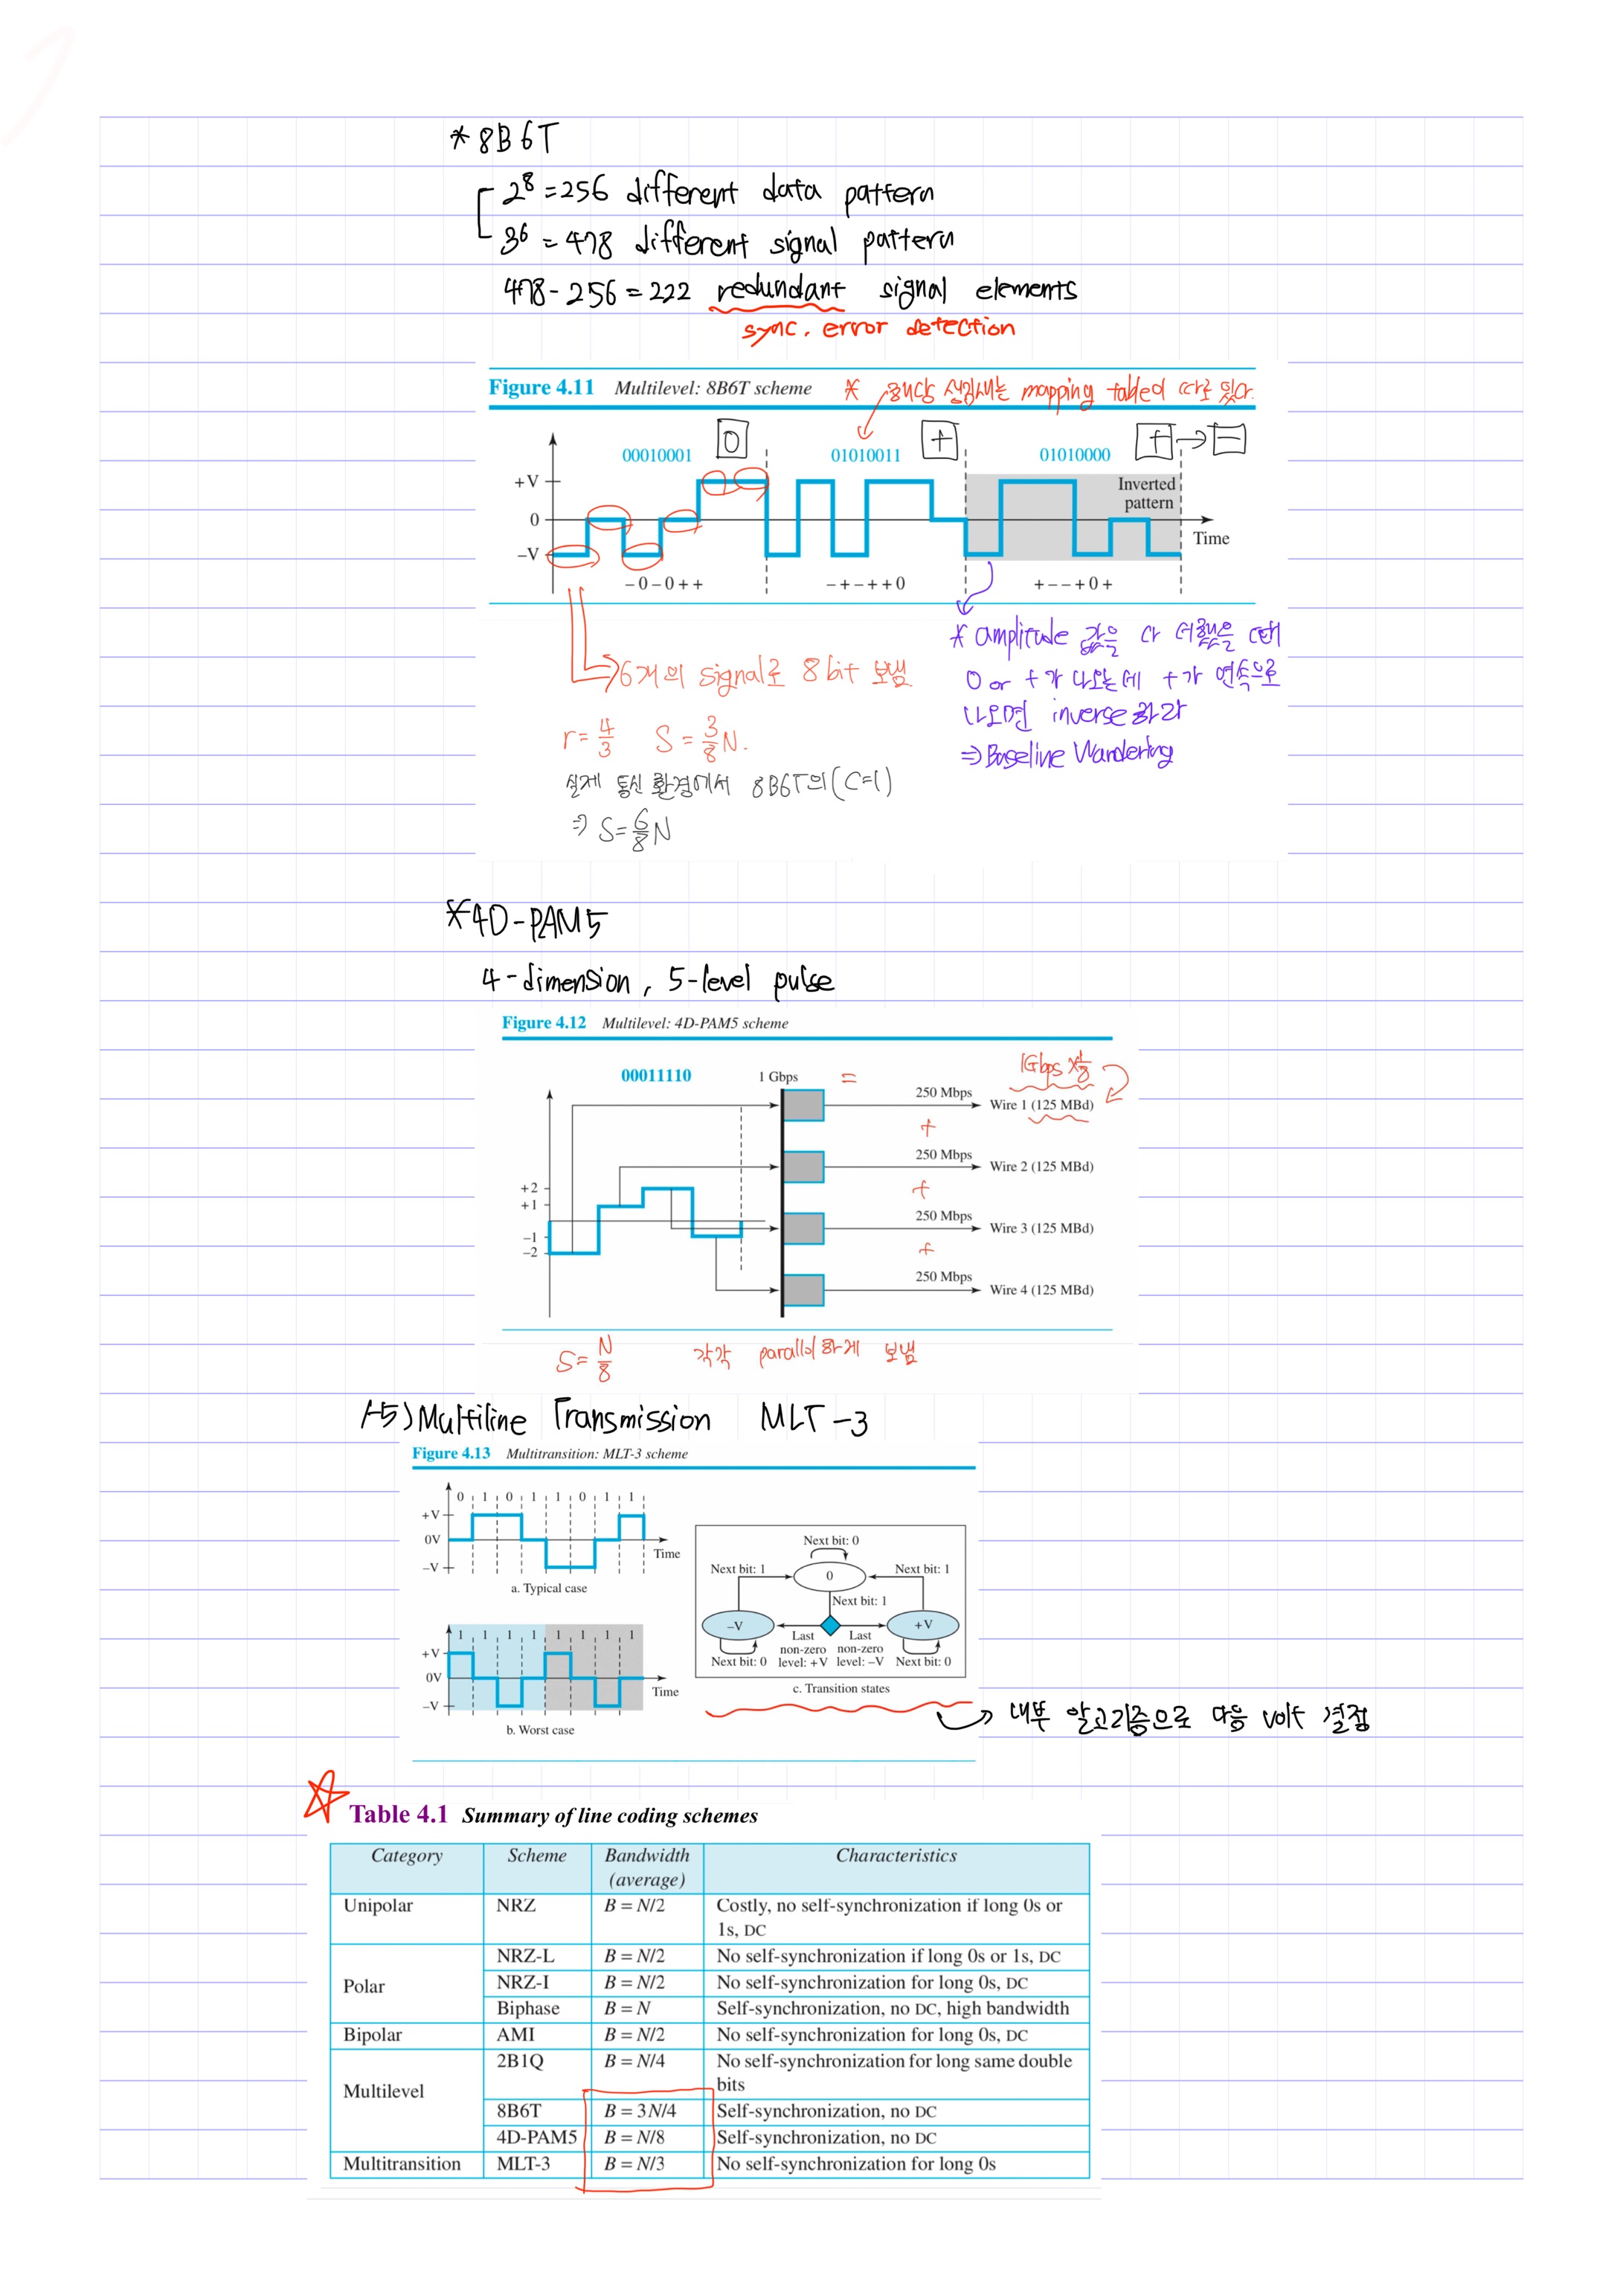 * 8B6T
2⁸ = 256 different data pattern
3⁶ = 478 different signal pattern
478 - 256 = 222 redundant signal elements
sync. error detection
Figure 4.11 Multilevel: 8B6T scheme
* 해당 생김새는 mapping table이 따로 있다.
00010001 0 01010011 + 01010000 + → −
Inverted pattern
+V
0
−V
Time
− 0 − 0 + + − + − + + 0 + − − + 0 +
6개의 signal로 8 bit 보냄
r = 4/3 S = 3/8 N.
실제 통신 환경에서 8B6T의 (C=1)
⇒ S = 6/8 N
* amplitude 값을 다 더했을 때
0 or +가 나오는데 +가 연속으로
나오면 inverse 하라
⇒ Baseline Wandering
*4D-PAM5
4-dimension, 5-level pulse
Figure 4.12 Multilevel: 4D-PAM5 scheme
1Gbps × 1/8
00011110 1 Gbps =
250 Mbps Wire 1 (125 MBd)
+
250 Mbps Wire 2 (125 MBd)
+
250 Mbps Wire 3 (125 MBd)
+
250 Mbps Wire 4 (125 MBd)
+2
+1
−1
−2
S = N/8 각각 parallel 하게 보냄
Multiline Transmission MLT-3
Figure 4.13 Multitransition: MLT-3 scheme
0 1 0 1 1 0 1 1
+V
0V
−V
Time
a. Typical case
1 1 1 1 1 1 1 1
+V
0V
−V
Time
b. Worst case
Next bit: 0
Next bit: 1 0 Next bit: 1
Next bit: 1
−V +V
Last non-zero level: +V Last non-zero level: −V
Next bit: 0 Next bit: 0
c. Transition states
내부 알고리즘으로 다음 volt 결정
Table 4.1 Summary of line coding schemes
Category Scheme Bandwidth (average) Characteristics
Unipolar NRZ B = N/2 Costly, no self-synchronization if long 0s or 1s, DC
Polar NRZ-L B = N/2 No self-synchronization if long 0s or 1s, DC
NRZ-I B = N/2 No self-synchronization for long 0s, DC
Biphase B = N Self-synchronization, no DC, high bandwidth
Bipolar AMI B = N/2 No self-synchronization for long 0s, DC
Multilevel 2B1Q B = N/4 No self-synchronization for long same double bits
8B6T B = 3N/4 Self-synchronization, no DC
4D-PAM5 B = N/8 Self-synchronization, no DC
Multitransition MLT-3 B = N/3 No self-synchronization for long 0s